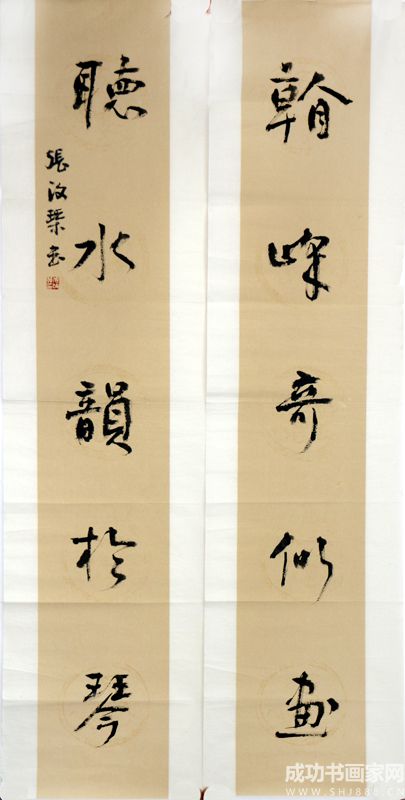 奇似画
聽水韻於琴
張汝琹書
成功书画家网
WWW.SHJ888.CN